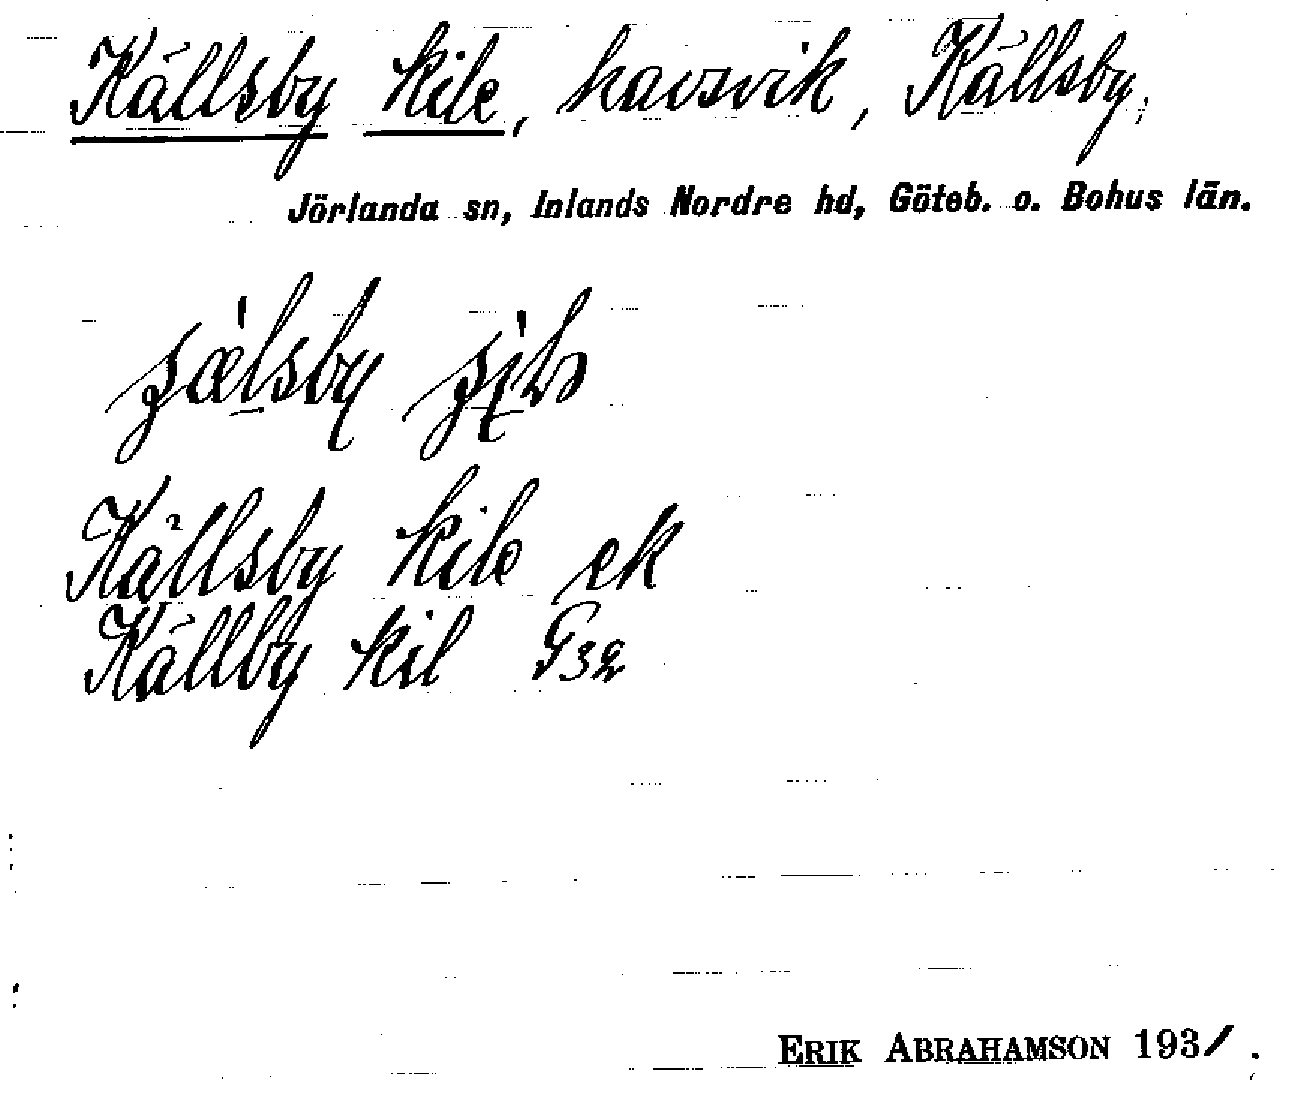 Källsby kile, havsvik, Källsby,
Jörlanda sn, Inlands Nordre hd, Göteb. o. Bohus län.
Källsby kile ek
Källby kil G32
ERIK ABRAHAMSON 1931.